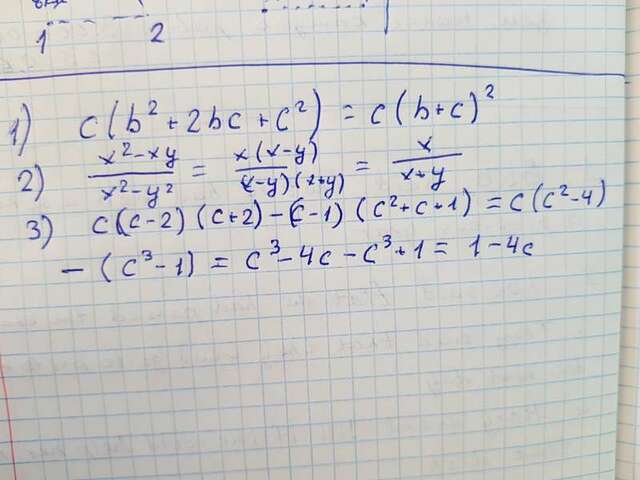 1 2
1) c(b² + 2bc + c²) = c(b+c)²
2) x² - xy / x² - y² = x(x-y) / (x-y)(x+y) = x / x+y
3) c(c-2)(c+2) - (c-1)(c²+c+1) = c(c²-4)
- (c³-1) = c³ - 4c - c³ + 1 = 1 - 4c